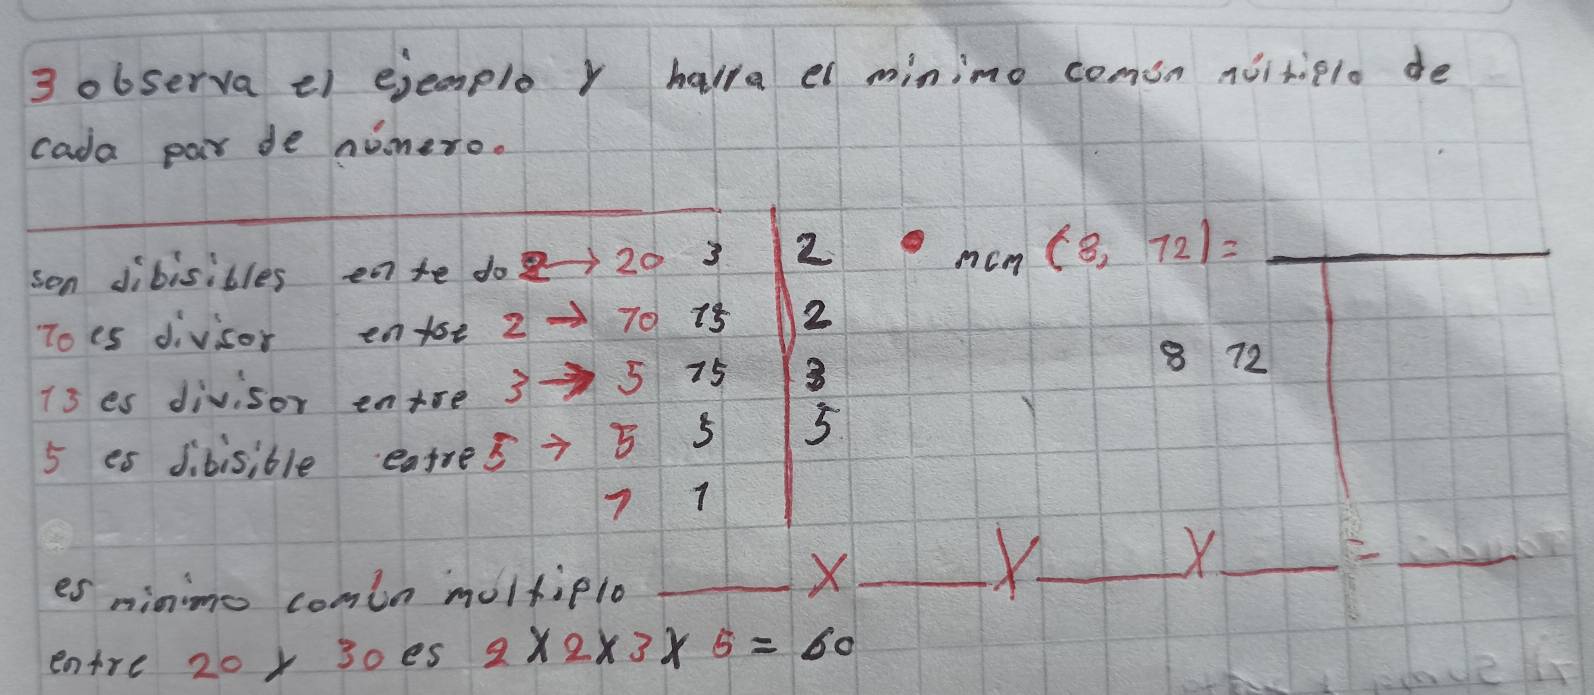 3 observa el ejemplo y halla el minimo común múltiplo de
cada par de número.
son dibisibles ente do 2 → 20 3 2
10 es divisor entre 2 → 10 15 2
13 es divisor entre 3 → 5 15 3
5 es dibisible entre 5 → 5 5 5
1 1
• mcm (8, 12) = 
8 12
___ X ___ X ___ X ___ = ___
es minimo común múltiplo
entre 20 y 30 es 2 X 2 X 3 X 5 = 60